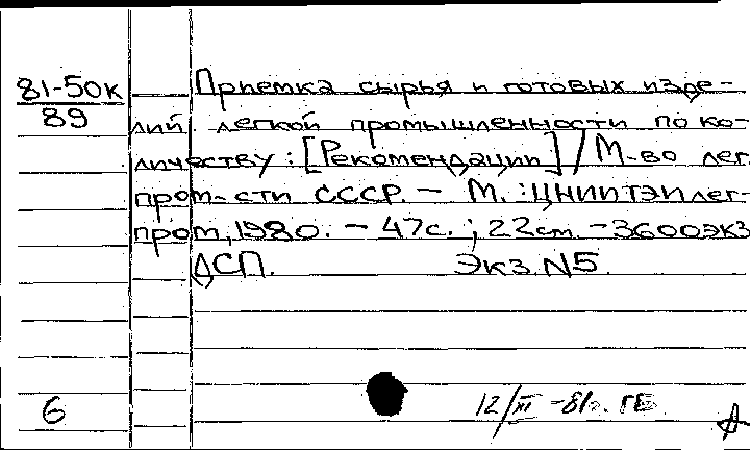 81-50к Приемка сырья и готовых изде-
89 лий легкой промышленности по ко-
личеству: [Рекомендации] / М-во лег.
пром-сти СССР. - М.: ЦНИИТЭИлег-
пром, 1980. - 47с.; 22см. - 3600экз
ДСП. Экз. N5.
6 12/XI -81г. ГБ.